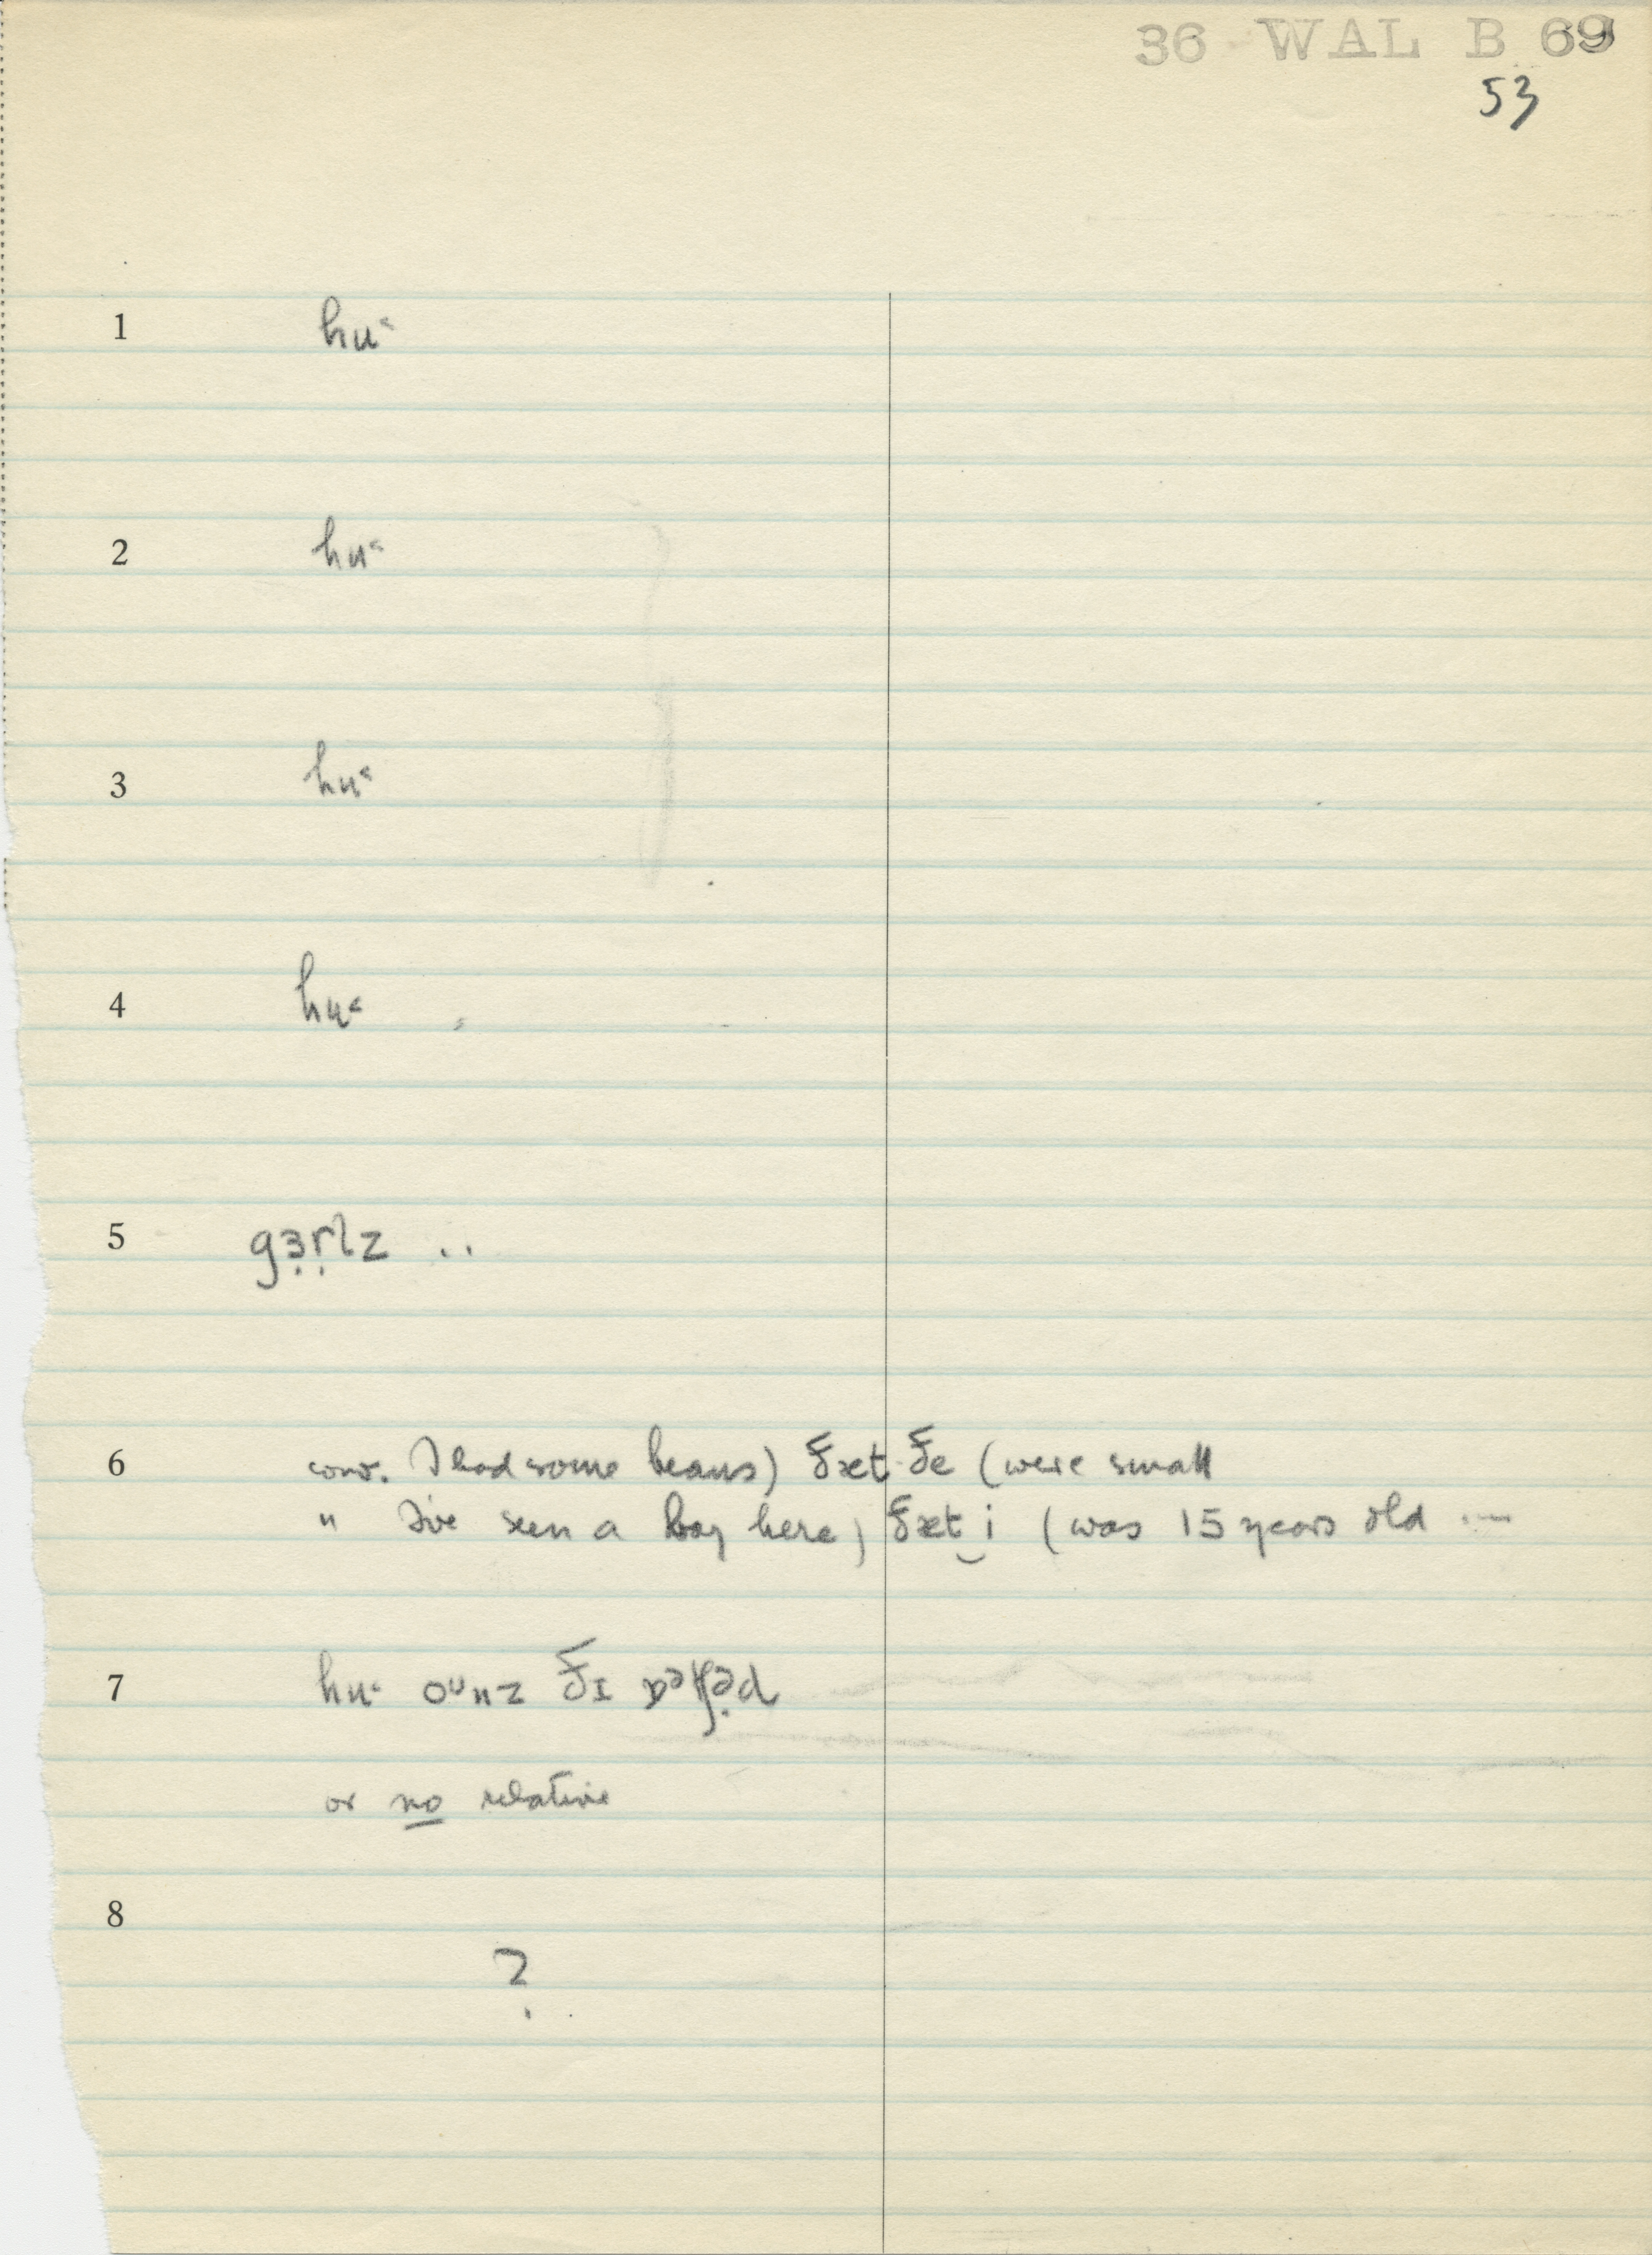 36 WAL B 69
53
1 hu˂
2 hu˂
3 hu˂
4 hu˂
5 gɜ̣ṛlz ..
6 conv. I had some beans) ðæt ðe (were small
" I've seen a boy here) ðæt‿i (was 15 years old ...
7 hu˂ oᵘnz ðɪ
or no relative
8
?